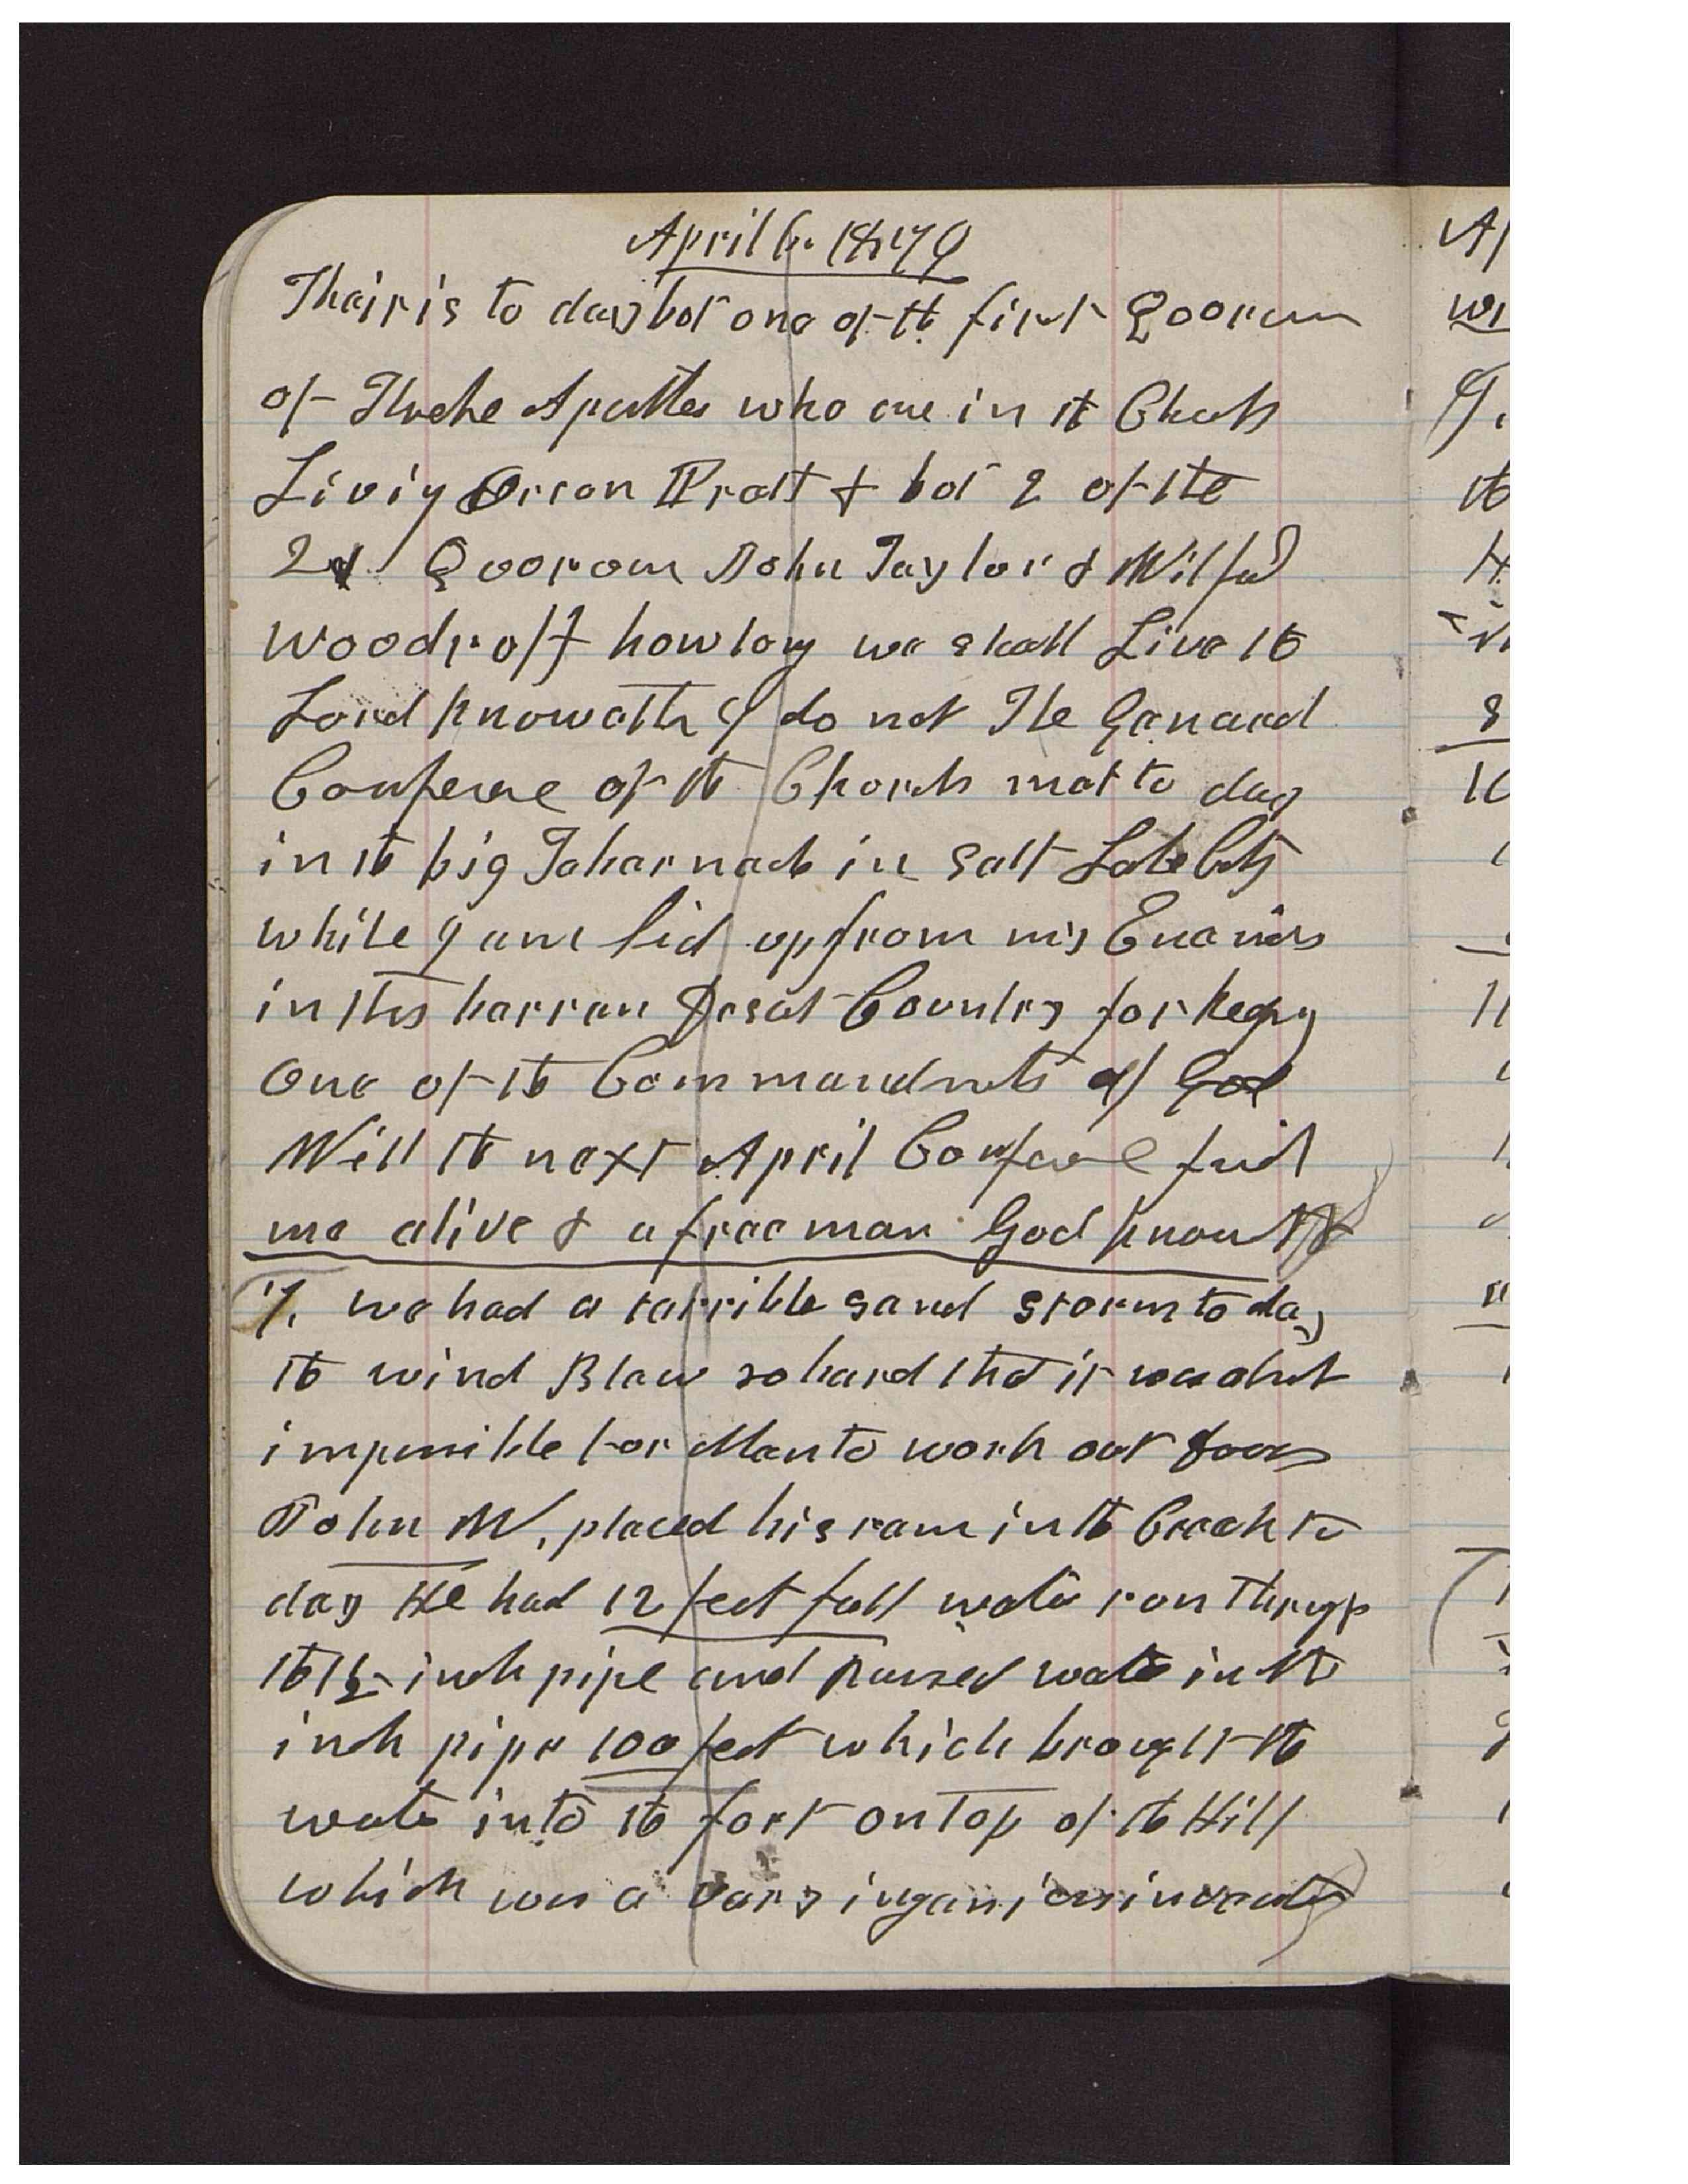 April 6. 1879
Thair is to day but one of the first Quorum
of Twelve Apostles who are in the Church
Living Orson Pratt & but 2 of the
2d Quorom John Taylor & Wilford
Woodruff how long we shall Live the
Lord knoweth I do not The General
Conference of the Church met to day
in the big Tabernacle in Salt Lake City
while I am hid up from my Enemies
in this barren Desert Country for keeping
one of the Commandments of God
Will the next April Conference find
me alive & a free man God knoweth
7. we had a tarrible sand storm to day
the wind Blew so hard that it was almost
impossible for Man to work out doors
John W. placed his ram in the Creek to
day He had 12 feet fall water run through
the 1½ inch pipe and raised water in the
inch pipe 100 feet which brought the
water into the fort on Top of the Hill
which was a vary
Ap